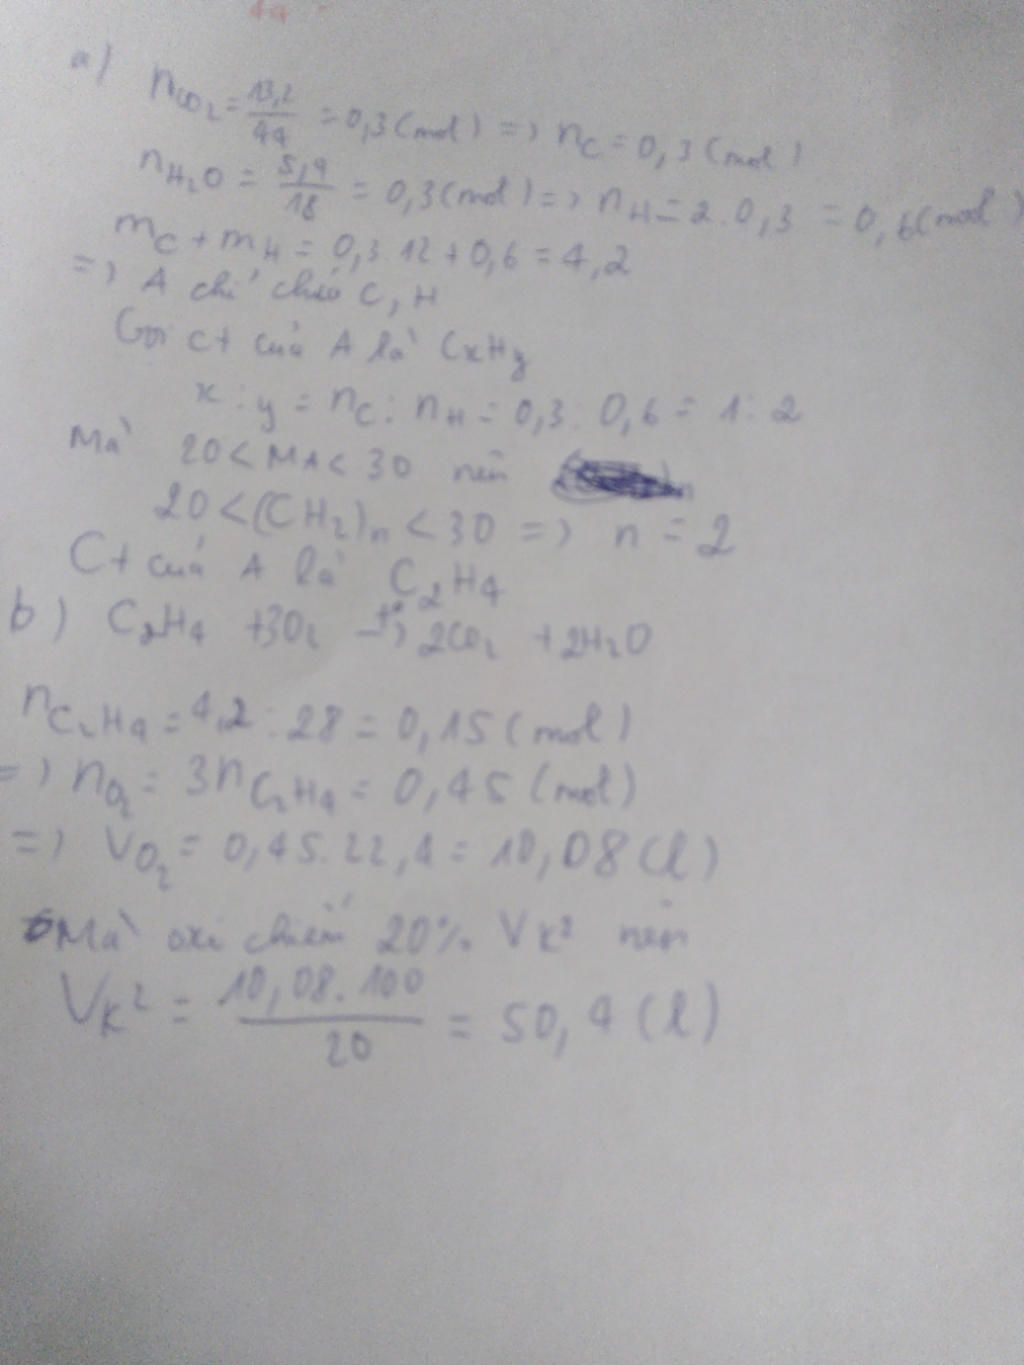 4a
a) nCO2 = 13,2/44 = 0,3 (mol) => nC = 0,3 (mol)
nH2O = 5,4/18 = 0,3 (mol) => nH = 2.0,3 = 0,6 (mol)
mC + mH = 0,3.12 + 0,6 = 4,2
=> A chỉ chứa C, H
Gọi ct của A là CxHy
x : y = nC : nH = 0,3 : 0,6 = 1 : 2
Mà 20 < MA < 30 nên
20 < (CH2)n < 30 => n = 2
Ct của A là C2H4
b) C2H4 + 3O2 -t°-> 2CO2 + 2H2O
nC2H4 = 4,2 : 28 = 0,15 (mol)
=> nO2 = 3nC2H4 = 0,45 (mol)
=> VO2 = 0,45.22,4 = 10,08 (l)
Mà oxi chiếm 20% Vk² nên
Vk² = 10,08.100/20 = 50,4 (l)